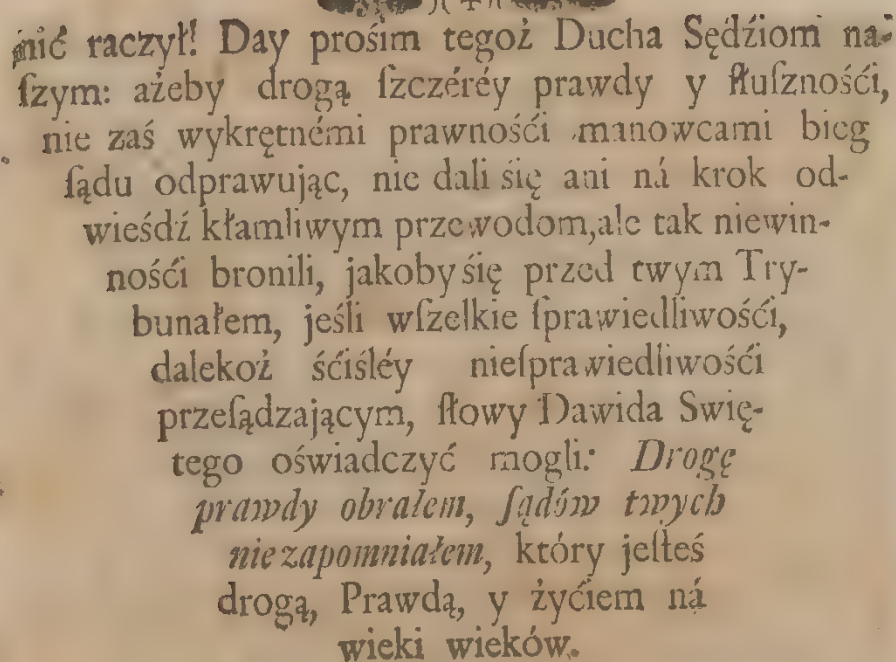 )(✠)(
nić raczył! Day prośim tegoż Ducha Sędźiom na-
ſzym: ażeby drogą ſzczéréy prawdy y ſłuſznośći,
nie zaś wykrętnémi prawnośći manowcami bieg
ſądu odprawując, nie dali się ani ná krok od-
wieśdź kłamliwym przewodom, ale tak niewin-
nośći bronili, jakoby się przed twym Try-
bunałem, jeśli wſzelkie ſprawiedliwośći,
dalekoż śćiśléy nieſprawiedliwośći
przeſądzającym, ſłowy Dawida Swię-
tego oświadczyć mogli: Drogę
prawdy obrałem, ſądów twych
nie zapomniałem, który jeſteś
drogą, Prawdą, y żyćiem ná
wieki wieków.